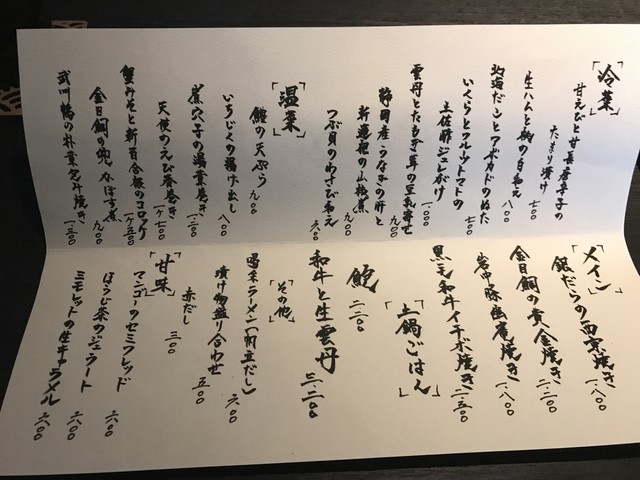 「冷菜」
甘えびと甘長唐辛子の
たまり漬け 七〇〇
生ハムと桃の白和え 八〇〇
北海だことアボカドのぬた 七〇〇
いくらとフルーツトマトの
土佐酢ジュレがけ 一、〇〇〇
雲丹とたもぎ茸の豆乳寄せ 九〇〇
静岡産うなぎの肝と
新蓮根の山椒煮 九〇〇
つぶ貝のわさび和え 六〇〇
「温菜」
鱧の天ぷら 九〇〇
いちじくの揚げ出し 八〇〇
煮穴子の湯葉巻き 一、二〇〇
天使のえび春巻き 一ヶ七〇〇
蟹みそと新百合根のコロッケ 一ヶ五〇〇
金目鯛の兜 かぼす煮 九〇〇
武州鴨の朴葉包み焼き 一、三〇〇
「メイン」
銀だらの西京焼き 一、八〇〇
金目鯛の黄金焼き 二、二〇〇
岩中豚幽庵焼き 一、八〇〇
黒毛和牛イチボ焼き 二、五〇〇
「土鍋ごはん」
鮑 二、二〇〇
和牛と生雲丹 三、二〇〇
「その他」
喝采ラーメン(帆立だし) 六〇〇
漬け物盛り合わせ 五〇〇
赤だし 三〇〇
「甘味」
マンゴーのセミフレッド 六〇〇
ほうじ茶のジェラート 六〇〇
ミモレットの生キャラメル 二八〇